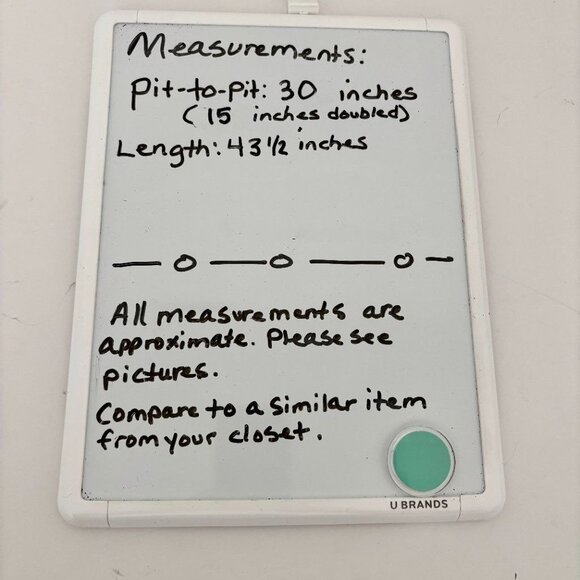 Measurements:
Pit-to-Pit: 30 inches
(15 inches doubled)
Length: 43 1/2 inches
All measurements are
approximate. Please see
pictures.
Compare to a similar item
from your closet.
U BRANDS